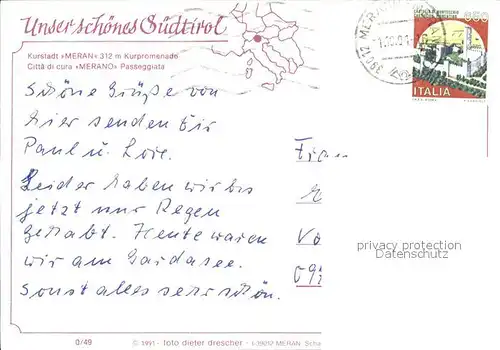 Unser schönes Südtirol
Kurstadt »MERAN« 312 m Kurpromenade
Città di cura »MERANO« Passeggiata
39012 MERAN
650
ITALIA
Schöne Grüße von
hier senden Dir
Paul u. Lore.
Leider haben wir bis
jetzt nur Regen
gehabt. Heute waren
wir am Gardasee.
Sonst alles sehr schön.
privacy protection
Datenschutz
0/49
© 1991 - foto dieter drescher - I-39012 MERAN